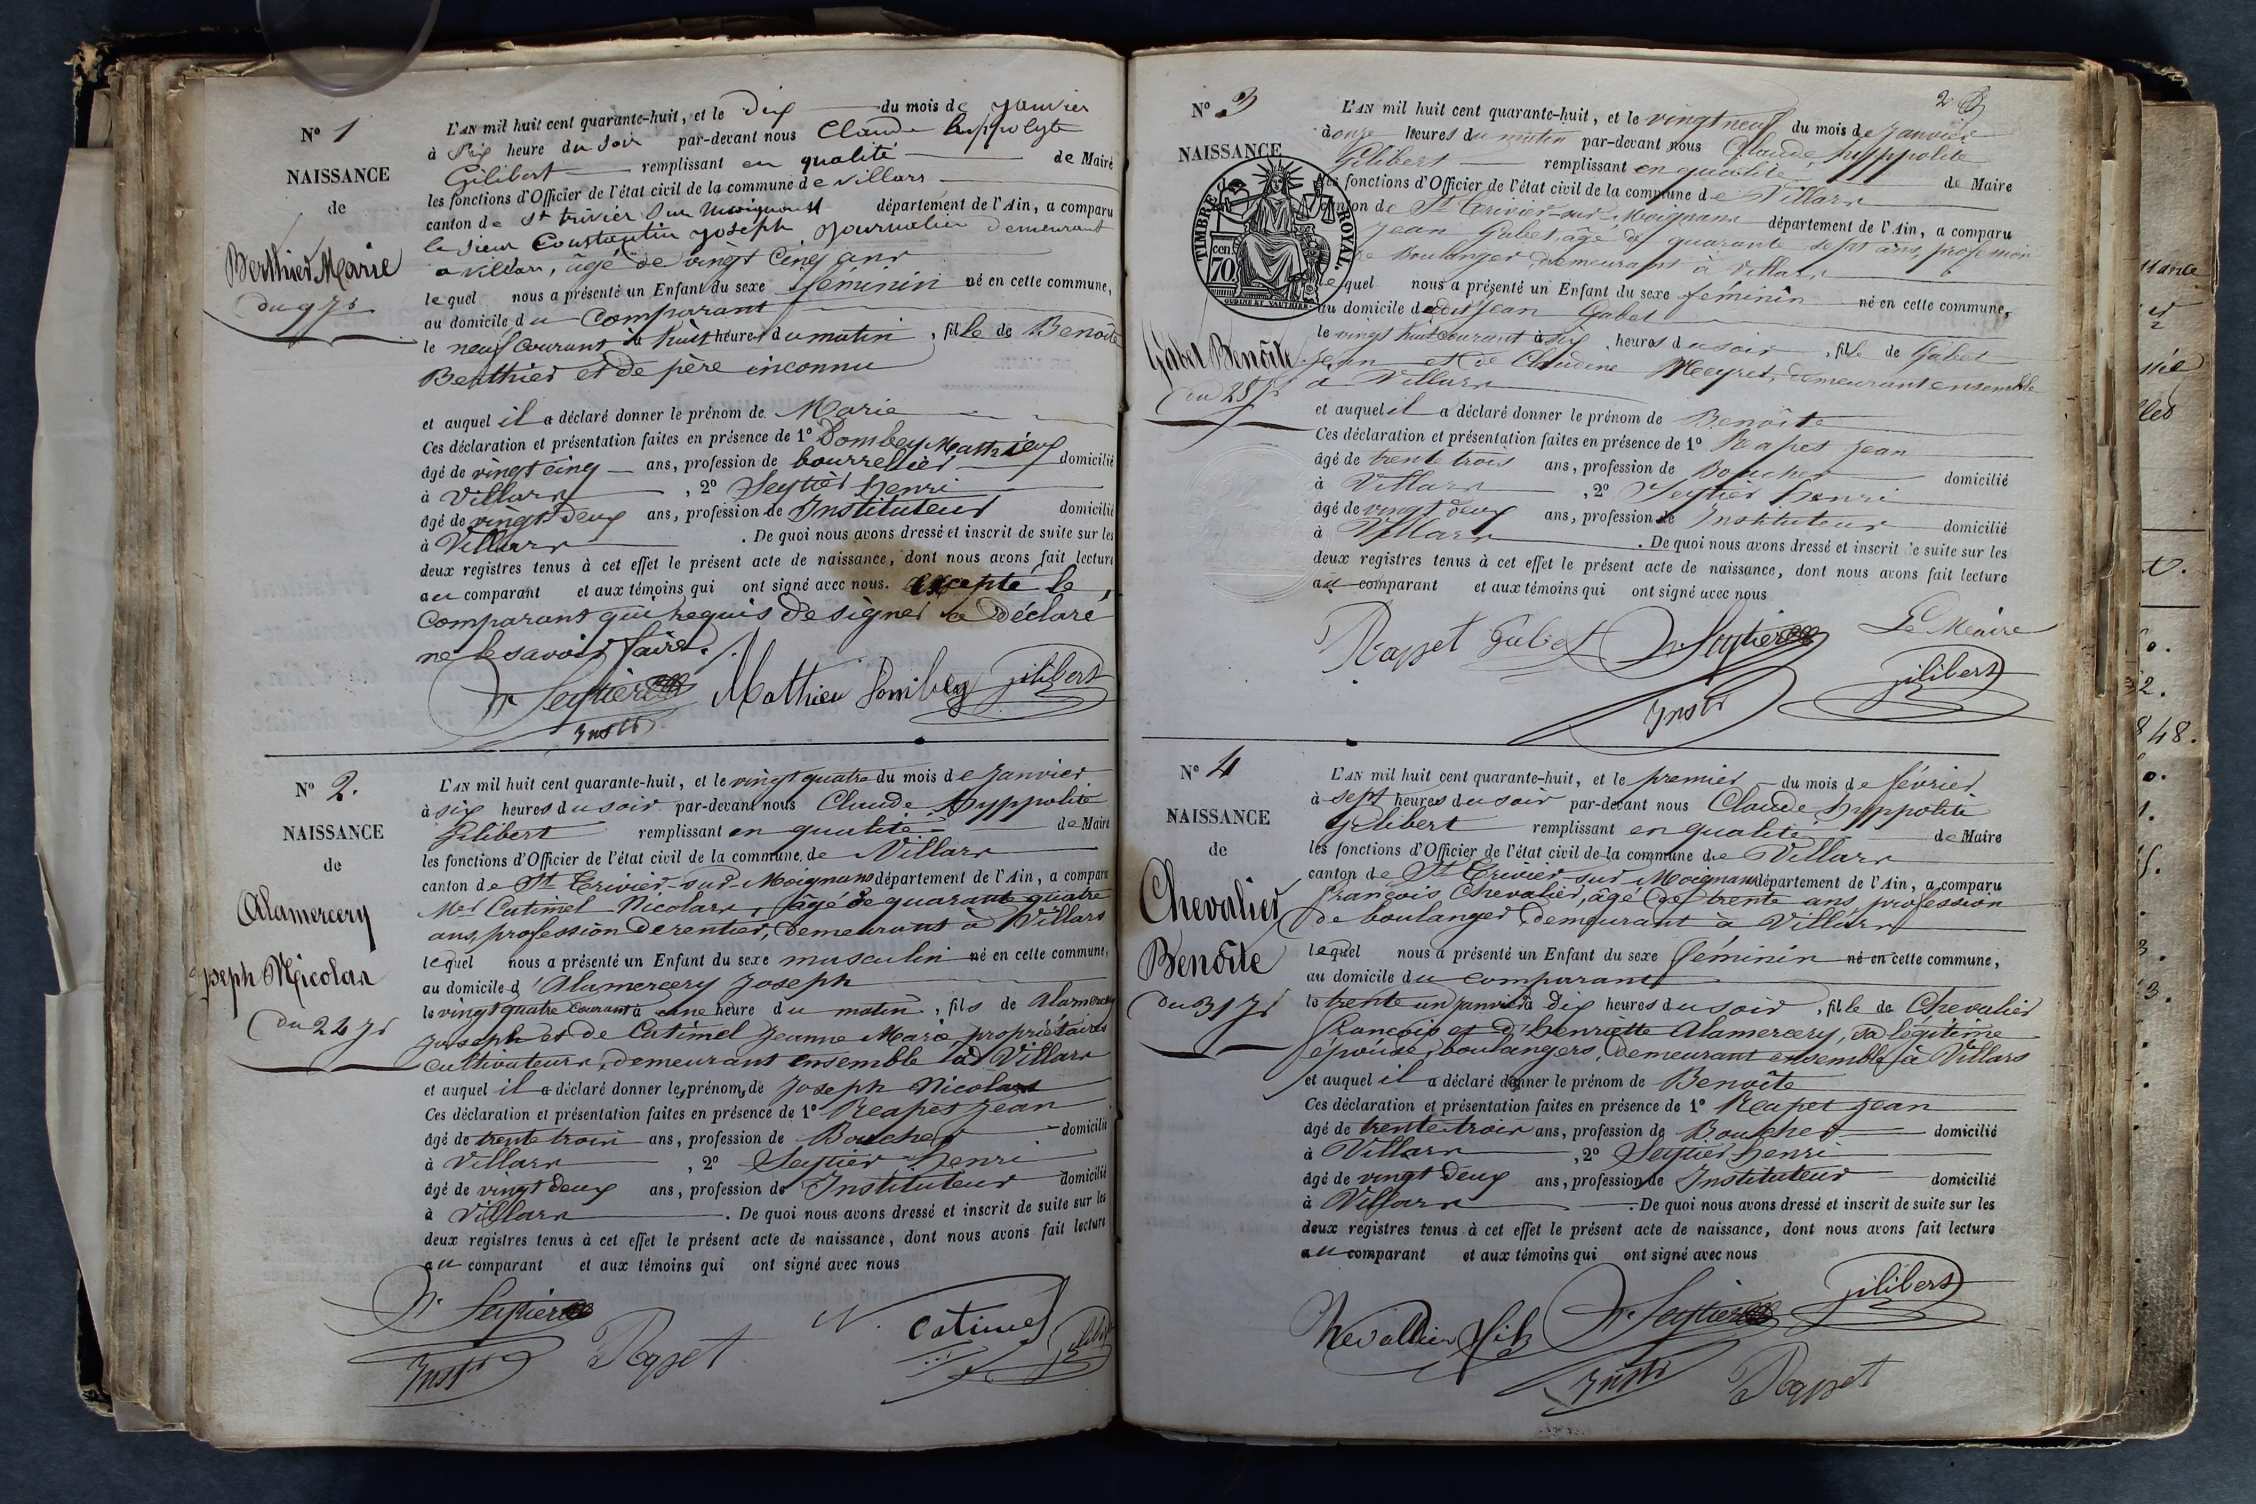 N° 1
NAISSANCE
de
Berthier Marie
du 9 J.er
L'AN mil huit cent quarante-huit, et le dix du mois de janvier
à Six heure du Soir par-devant nous Claude hippolyte
Gilibert remplissant en qualité de Maire
les fonctions d'Officier de l'état civil de la commune de villars
canton de St trivier Sur Moignans département de l'Ain, a comparu
le Sieur Constantin Joseph Journalier demeurant
a villars, âgé de vingt Cinq ans
lequel nous a présenté un Enfant du sexe féminin né en cette commune,
au domicile du Comparant
le neuf Courant à huit heures du matin, fille de Benoîte
Berthier et de père inconnu
et auquel il a déclaré donner le prénom de Marie
Ces déclaration et présentation faites en présence de 1° Dombey Matthieu
âgé de vingt cinq ans, profession de bourrelier domicilié
à Villars, 2° Seytier henri
âgé de vingt deux ans, profession de Instituteur domicilié
à Villars. De quoi nous avons dressé et inscrit de suite sur les
deux registres tenus à cet effet le présent acte de naissance, dont nous avons fait lecture
au comparant et aux témoins qui ont signé avec nous. excepté le
Comparant qui requis de signer a Déclaré
ne le savoir faire.
hr Seytier Mathieu Dombey Gilibert
Instr
N° 2.
NAISSANCE
de
Alamercery
Joseph Nicolas
du 24 J.er
L'AN mil huit cent quarante-huit, et le vingt quatre du mois de janvier
à six heures du soir par-devant nous Claude hyppolite
Gilibert remplissant en qualité de Maire
les fonctions d'Officier de l'état civil de la commune de Villars
canton de St Trivier-sur-Moignans département de l'Ain, a comparu
Mr Catimel Nicolas, âgé de quarante quatre
ans, profession de rentier, demeurant à Villars
lequel nous a présenté un Enfant du sexe masculin né en cette commune,
au domicile d'Alamercery Joseph
le vingt quatre Courant à une heure du matin, fils de Alamercery
Joseph et de Catimel Jeanne Marie, propriétaires
cultivateurs, demeurant ensemble à Villars
et auquel il a déclaré donner les prénoms de Joseph Nicolas
Ces déclaration et présentation faites en présence de 1° Reapet Jean
âgé de trente trois ans, profession de Boucher domicilié
à Villars, 2° Seytier henri
âgé de vingt deux ans, profession de Instituteur domicilié
à Villars. De quoi nous avons dressé et inscrit de suite sur les
deux registres tenus à cet effet le présent acte de naissance, dont nous avons fait lecture
au comparant et aux témoins qui ont signé avec nous
hr Seytier Rapet N. Catimel Gilibert
Instr
2
N° 3
NAISSANCE
TIMBRE ROYAL
70 cen
Gabet Benoîte
du 28 J.er
L'AN mil huit cent quarante-huit, et le vingt neuf du mois de janvier
à onze heures du matin par-devant nous Claude hyppolite
Gilibert remplissant en qualité de Maire
les fonctions d'Officier de l'état civil de la commune de Villars
canton de St Trivier-sur-Moignans département de l'Ain, a comparu
Jean Gabet, âgé de quarante sept ans, profession
de Boulanger, demeurant à Villars
lequel nous a présenté un Enfant du sexe féminin né en cette commune,
au domicile dudit Jean Gabet
le vingt huit courant à six heures du soir, fille de Gabet
Jean et de Claudine Meyret, demeurant ensemble
à Villars
et auquel il a déclaré donner le prénom de Benoîte
Ces déclaration et présentation faites en présence de 1° Reapet Jean
âgé de trente trois ans, profession de Boucher domicilié
à Villars, 2° Seytier henri
âgé de vingt deux ans, profession de Instituteur domicilié
à Villars. De quoi nous avons dressé et inscrit de suite sur les
deux registres tenus à cet effet le présent acte de naissance, dont nous avons fait lecture
au comparant et aux témoins qui ont signé avec nous
Rapet Gabet hr Seytier Le Maire
Instr Gilibert
N° 4
NAISSANCE
de
Chevalier
Benoîte
du 31 J.er
L'AN mil huit cent quarante-huit, et le premier du mois de février
à sept heures du soir par-devant nous Claude hyppolite
Gilibert remplissant en qualité de Maire
les fonctions d'Officier de l'état civil de la commune de Villars
canton de St Trivier-sur-Moignans département de l'Ain, a comparu
François Chevalier, âgé de trente ans, profession
de boulanger, demeurant à Villars
lequel nous a présenté un Enfant du sexe féminin né en cette commune,
au domicile du comparant
le trente un janvier à dix heures du soir, fille de Chevalier
François et d'henriette Alamercery, sa légitime
épouse, boulangers, demeurant ensemble à Villars
et auquel il a déclaré donner le prénom de Benoîte
Ces déclaration et présentation faites en présence de 1° Reapet Jean
âgé de trente trois ans, profession de Boucher domicilié
à Villars, 2° Seytier henri
âgé de vingt deux ans, profession de Instituteur domicilié
à Villars. De quoi nous avons dressé et inscrit de suite sur les
deux registres tenus à cet effet le présent acte de naissance, dont nous avons fait lecture
au comparant et aux témoins qui ont signé avec nous
Chevallier fils hr Seytier Gilibert
Instr Rapet